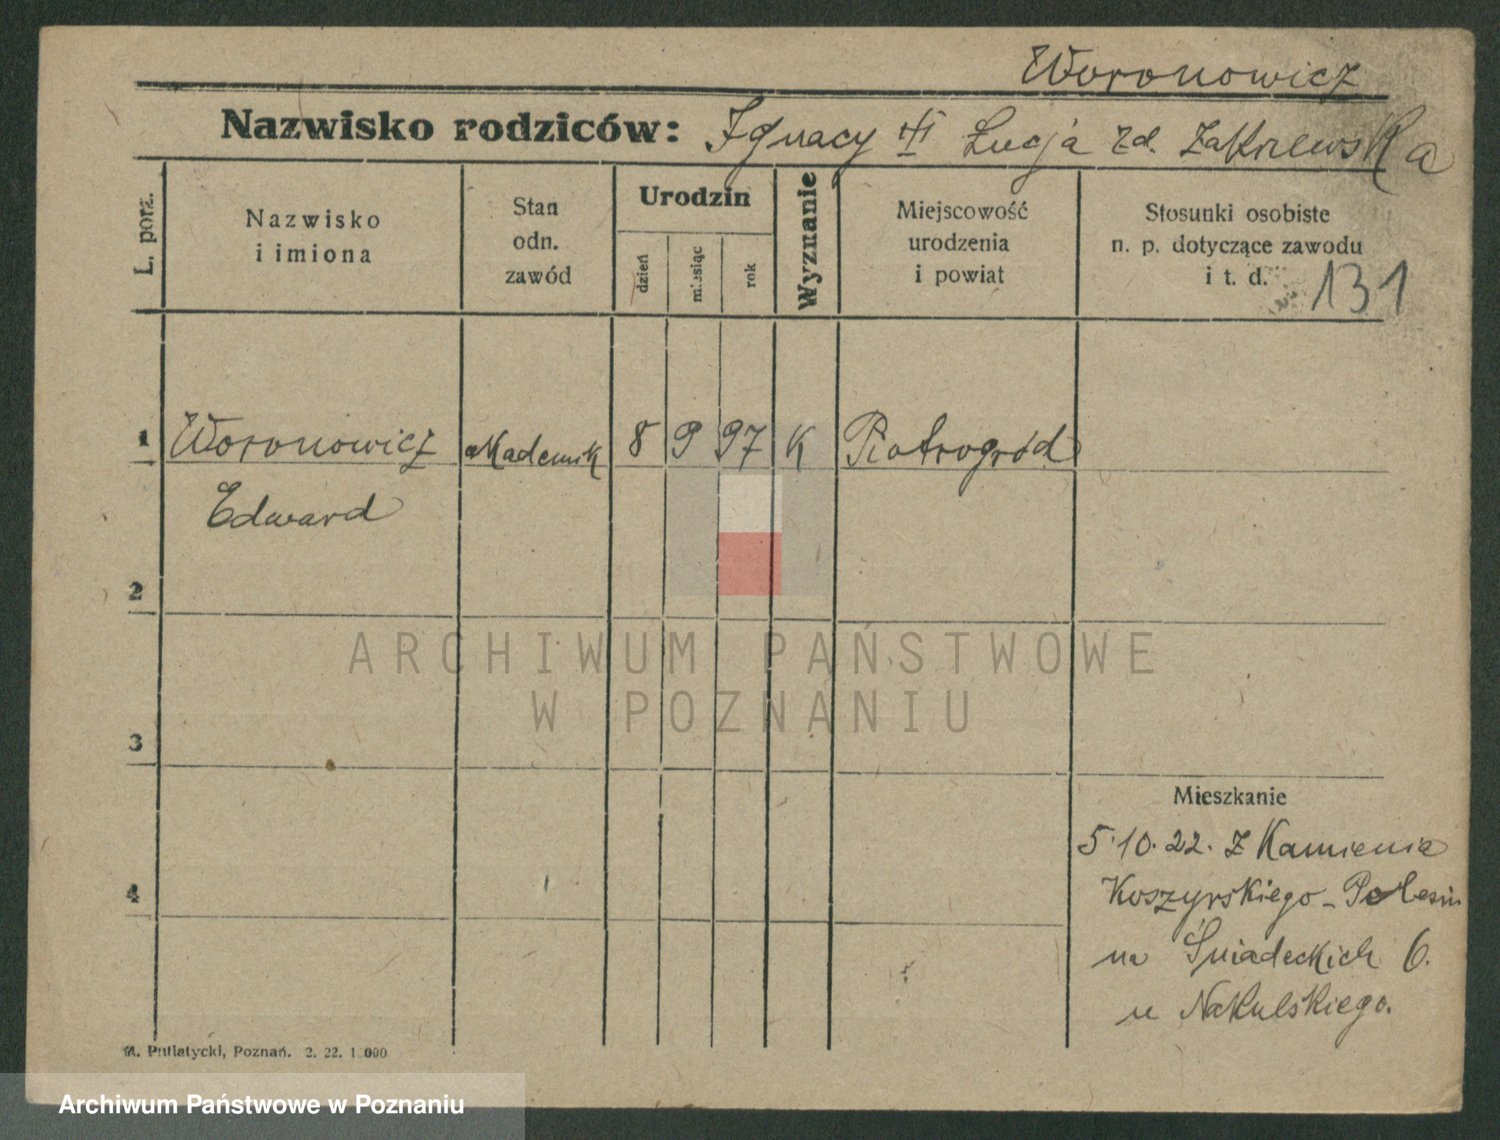 Woronowicz
Nazwisko rodziców: Ignacy i Łucja zd. Zakrzewska
L. porz.
Nazwisko
i imiona
Stan
odn.
zawód
Urodzin
dzień
miesiąc
rok
Wyznanie
Miejscowość
urodzenia
i powiat
Stosunki osobiste
n. p. dotyczące zawodu
i t. d.
131
1 Woronowicz akademik 8 9 97 K Piotrogród
Edward
2
ARCHIWUM PAŃSTWOWE
W POZNANIU
3
Mieszkanie
5.10.22. z Kamienia
4 Koszyrskiego - Polesiu
na Śniadeckich 6.
u Nakulskiego.
M. Putiatycki, Poznań. 2. 22. 1.000
Archiwum Państwowe w Poznaniu